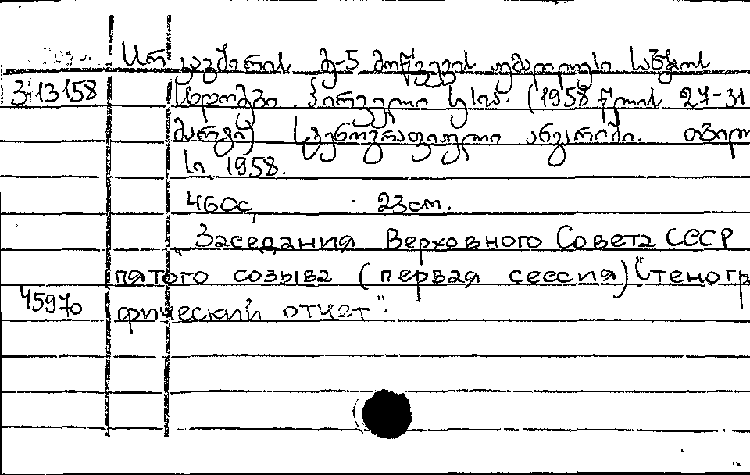 სსრ კავშირის მე-5 მოწვევის უმაღლესი საბჭოს
3413158 სხდომები. პირველი სესია. (1958 წლის 27-31
მარტი) სტენოგრაფიული ანგარიში. თბილი
სი, 1958.
460с. 23см.
Заседания Верховного Совета СССР
пятого созыва (первая сессия) "Стеногр
45970 фический отчет".